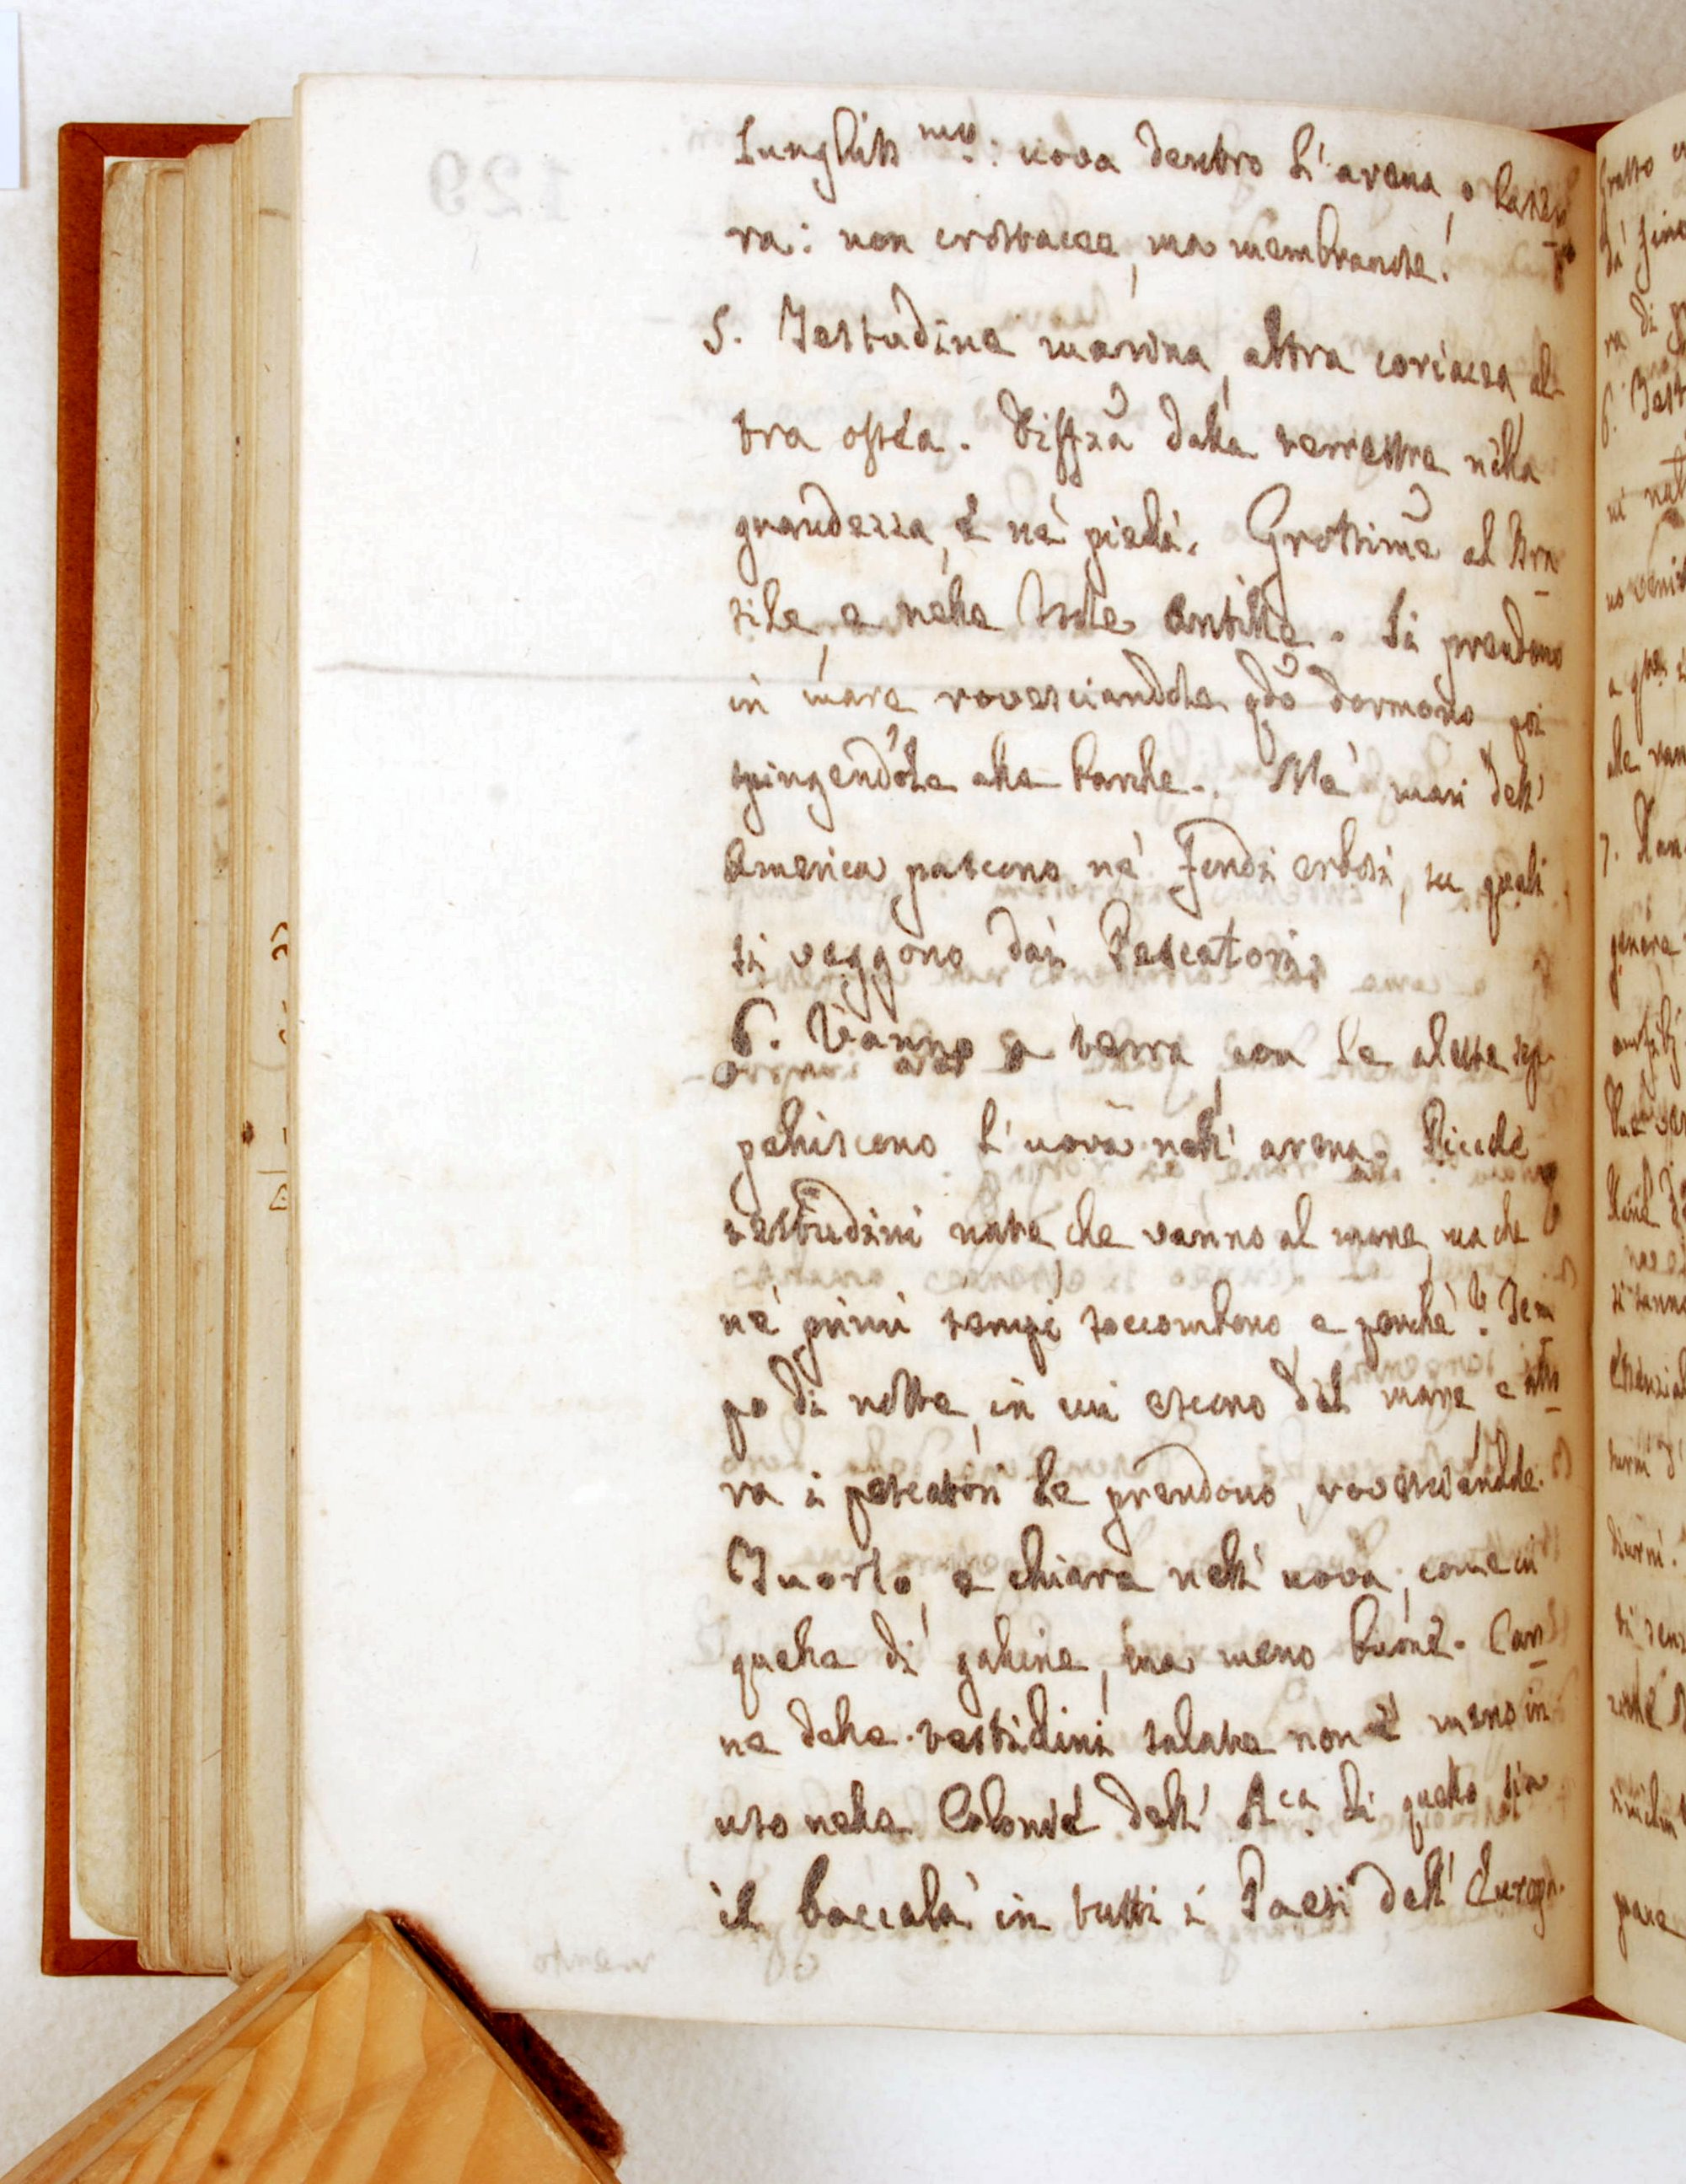 Lunghiss.me: uova dentro l'arena, o la ter
ra: non crostacee, ma membranose.
5. Testudine marina, altra coriacea al
tra ossea. Diffza dalla terrestre nella
grandezza, e ne' piedi. Grossime al Bra
sile, e nelle Isole Antille. Si prendono
in mare rovesciandole qdo dormono, poi
spingendole alle barche. Ne' mari dell'
America pascono ne' fondi erbosi, su quali
si veggono dai Pescatori.
6. Vanno a terra, con le alette sep
pelliscono l'uova nell' arena. Piccole
testudini nate che vanno al mare, ma che
ne' primi tempi soccombono, e perché? Tem
po di notte, in cui escono dal mare e
ra i pescatori le prendono, rovesciandole.
Tuorlo, e chiara nell' uova, come in
quelle di galline, ma meno buone. Car
ne delle testudini salate non è meno in
uso nelle Colonie dell' A.ca di quello sia
il baccalà in tutti i Paesi dell' Europa.